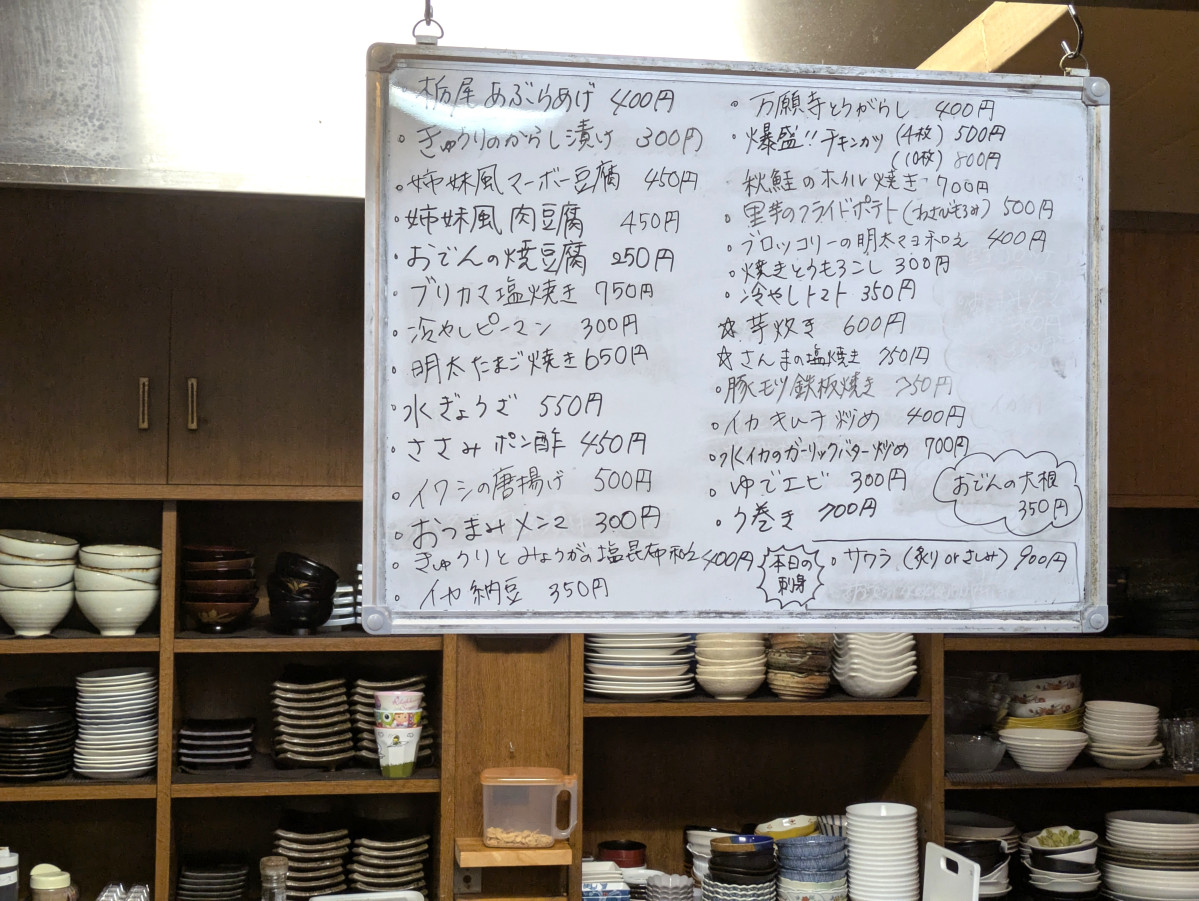 ・栃尾あぶらあげ 400円
・きゅうりのからし漬け 300円
・姉妹風マーボー豆腐 450円
・姉妹風肉豆腐 450円
・おでんの焼豆腐 250円
・ブリカマ塩焼き 750円
・冷やしピーマン 300円
・明太たまご焼き 650円
・水ぎょうざ 550円
・ささみポン酢 450円
・イワシの唐揚げ 500円
・おつまみメンマ 300円
・きゅうりとみょうがの塩昆布和え 400円
・イカ納豆 350円
・万願寺とうがらし 400円
・爆盛!!チキンカツ(4枚) 500円
(10枚) 800円
・秋鮭のホイル焼き 700円
・里芋のフライドポテト(わさびもろみ) 500円
・ブロッコリーの明太マヨ和え 400円
・焼きとうもろこし 300円
・冷やしトマト 350円
☆芋炊き 600円
☆さんまの塩焼き 750円
・豚モツ鉄板焼き 750円
・イカキムチ炒め 400円
・水イカのガーリックバター炒め 700円
・ゆでエビ 300円
・う巻き 700円
おでんの大根
350円
本日の
刺身
・サワラ(炙りorさしみ) 900円